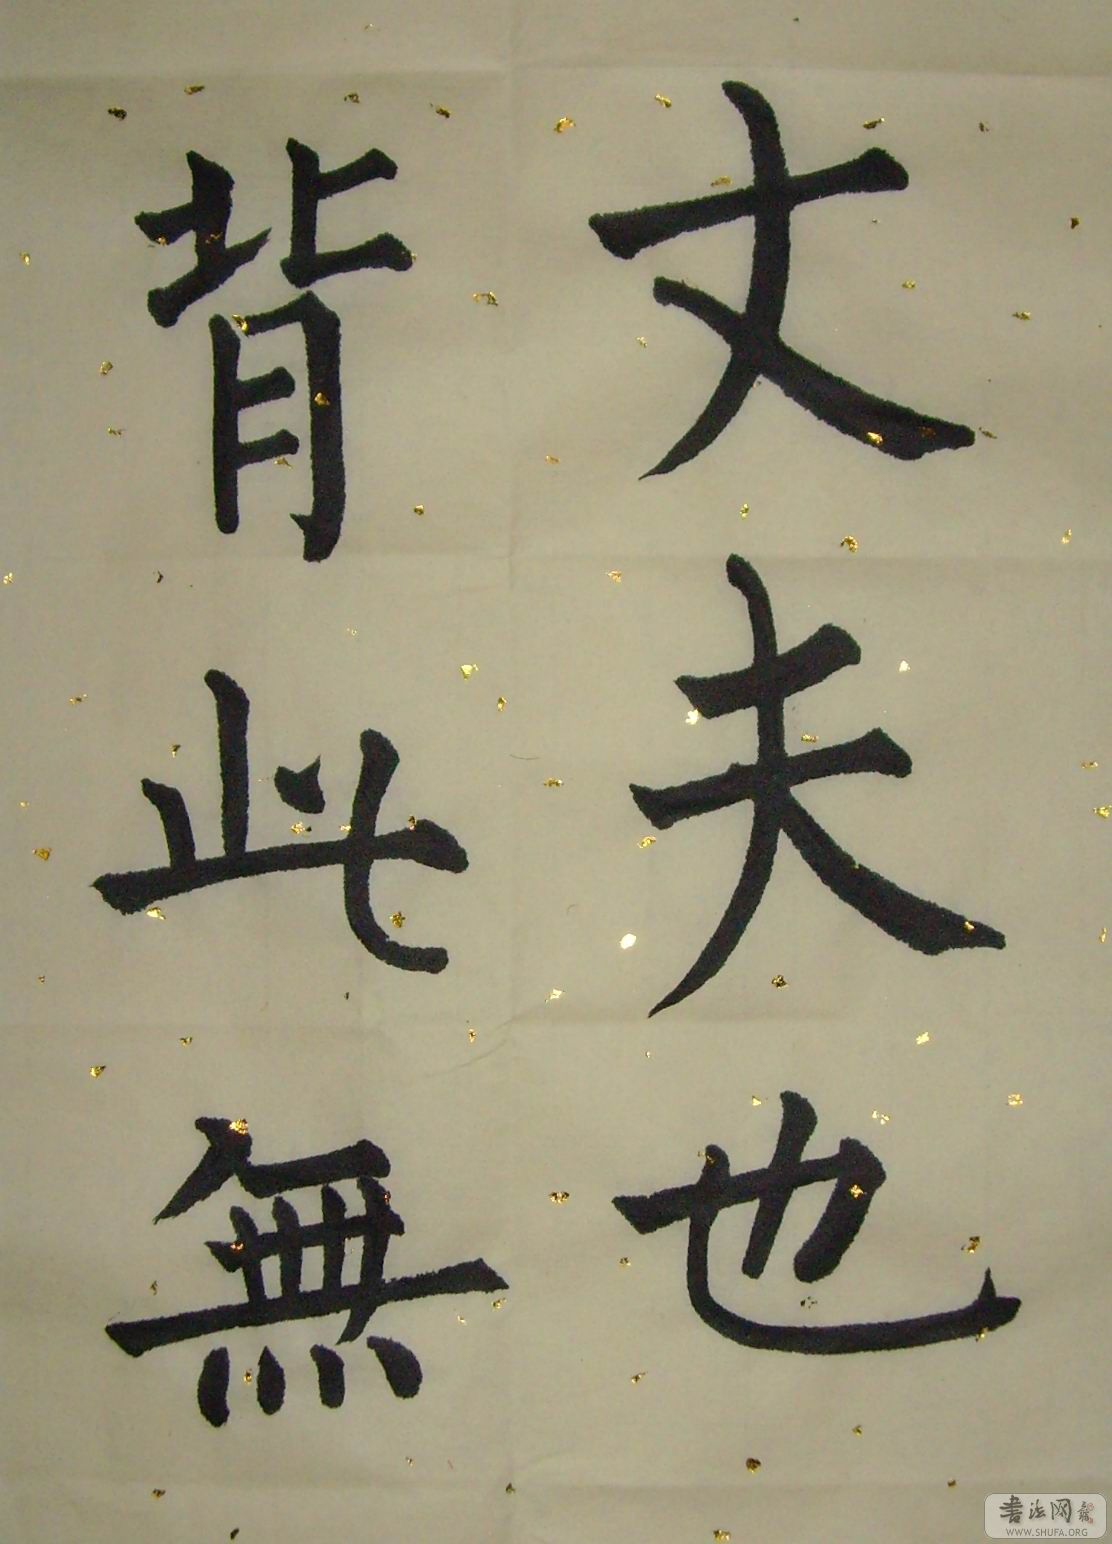 丈夫也
背此無
書法网
WWW.SHUFA.ORG